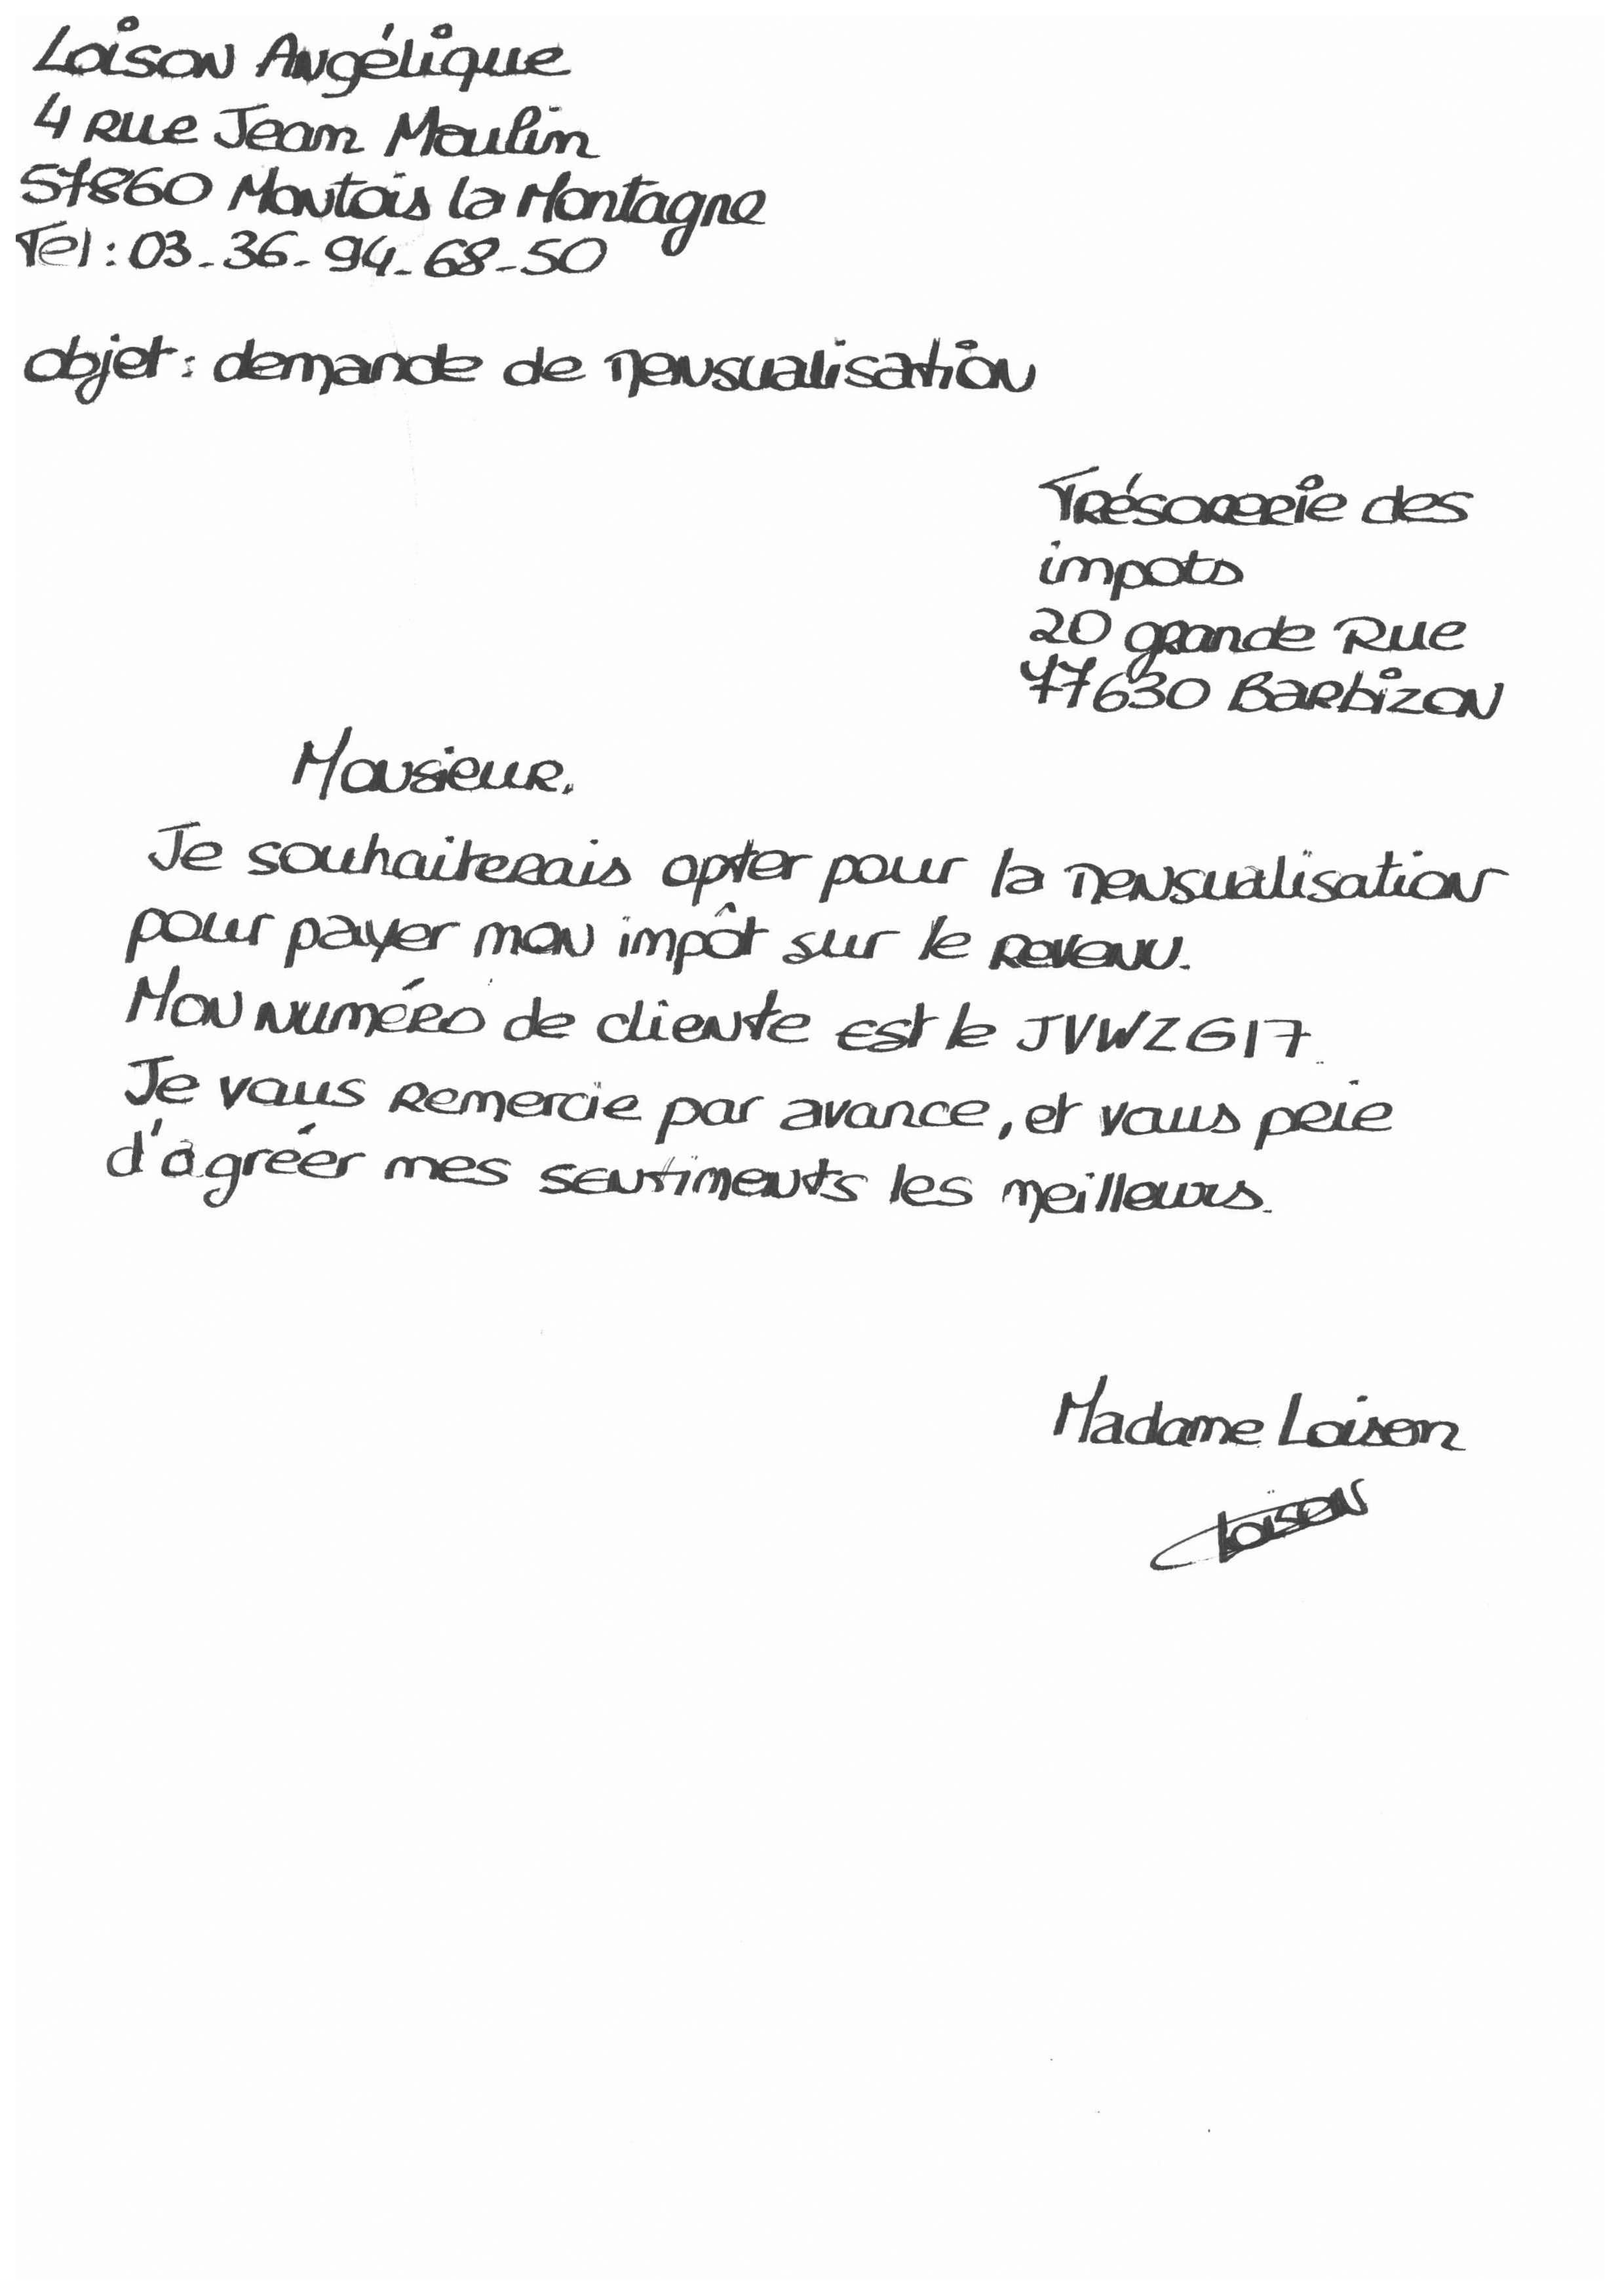 Loison Angélique
4 Rue Jean Moulin
57860 Montois la Montagne
Tel : 03-36-94-68-50
objet : demande de mensualisation
Trésorerie des
impots
20 grande Rue
77630 Barbizon
Monsieur,
Je souhaiterais opter pour la mensualisation
pour payer mon impôt sur le revenu.
Mon numéro de cliente est le JVWZG17.
Je vous remercie par avance, et vous prie
d'agréer mes sentiments les meilleurs.
Madame Loison
Loison